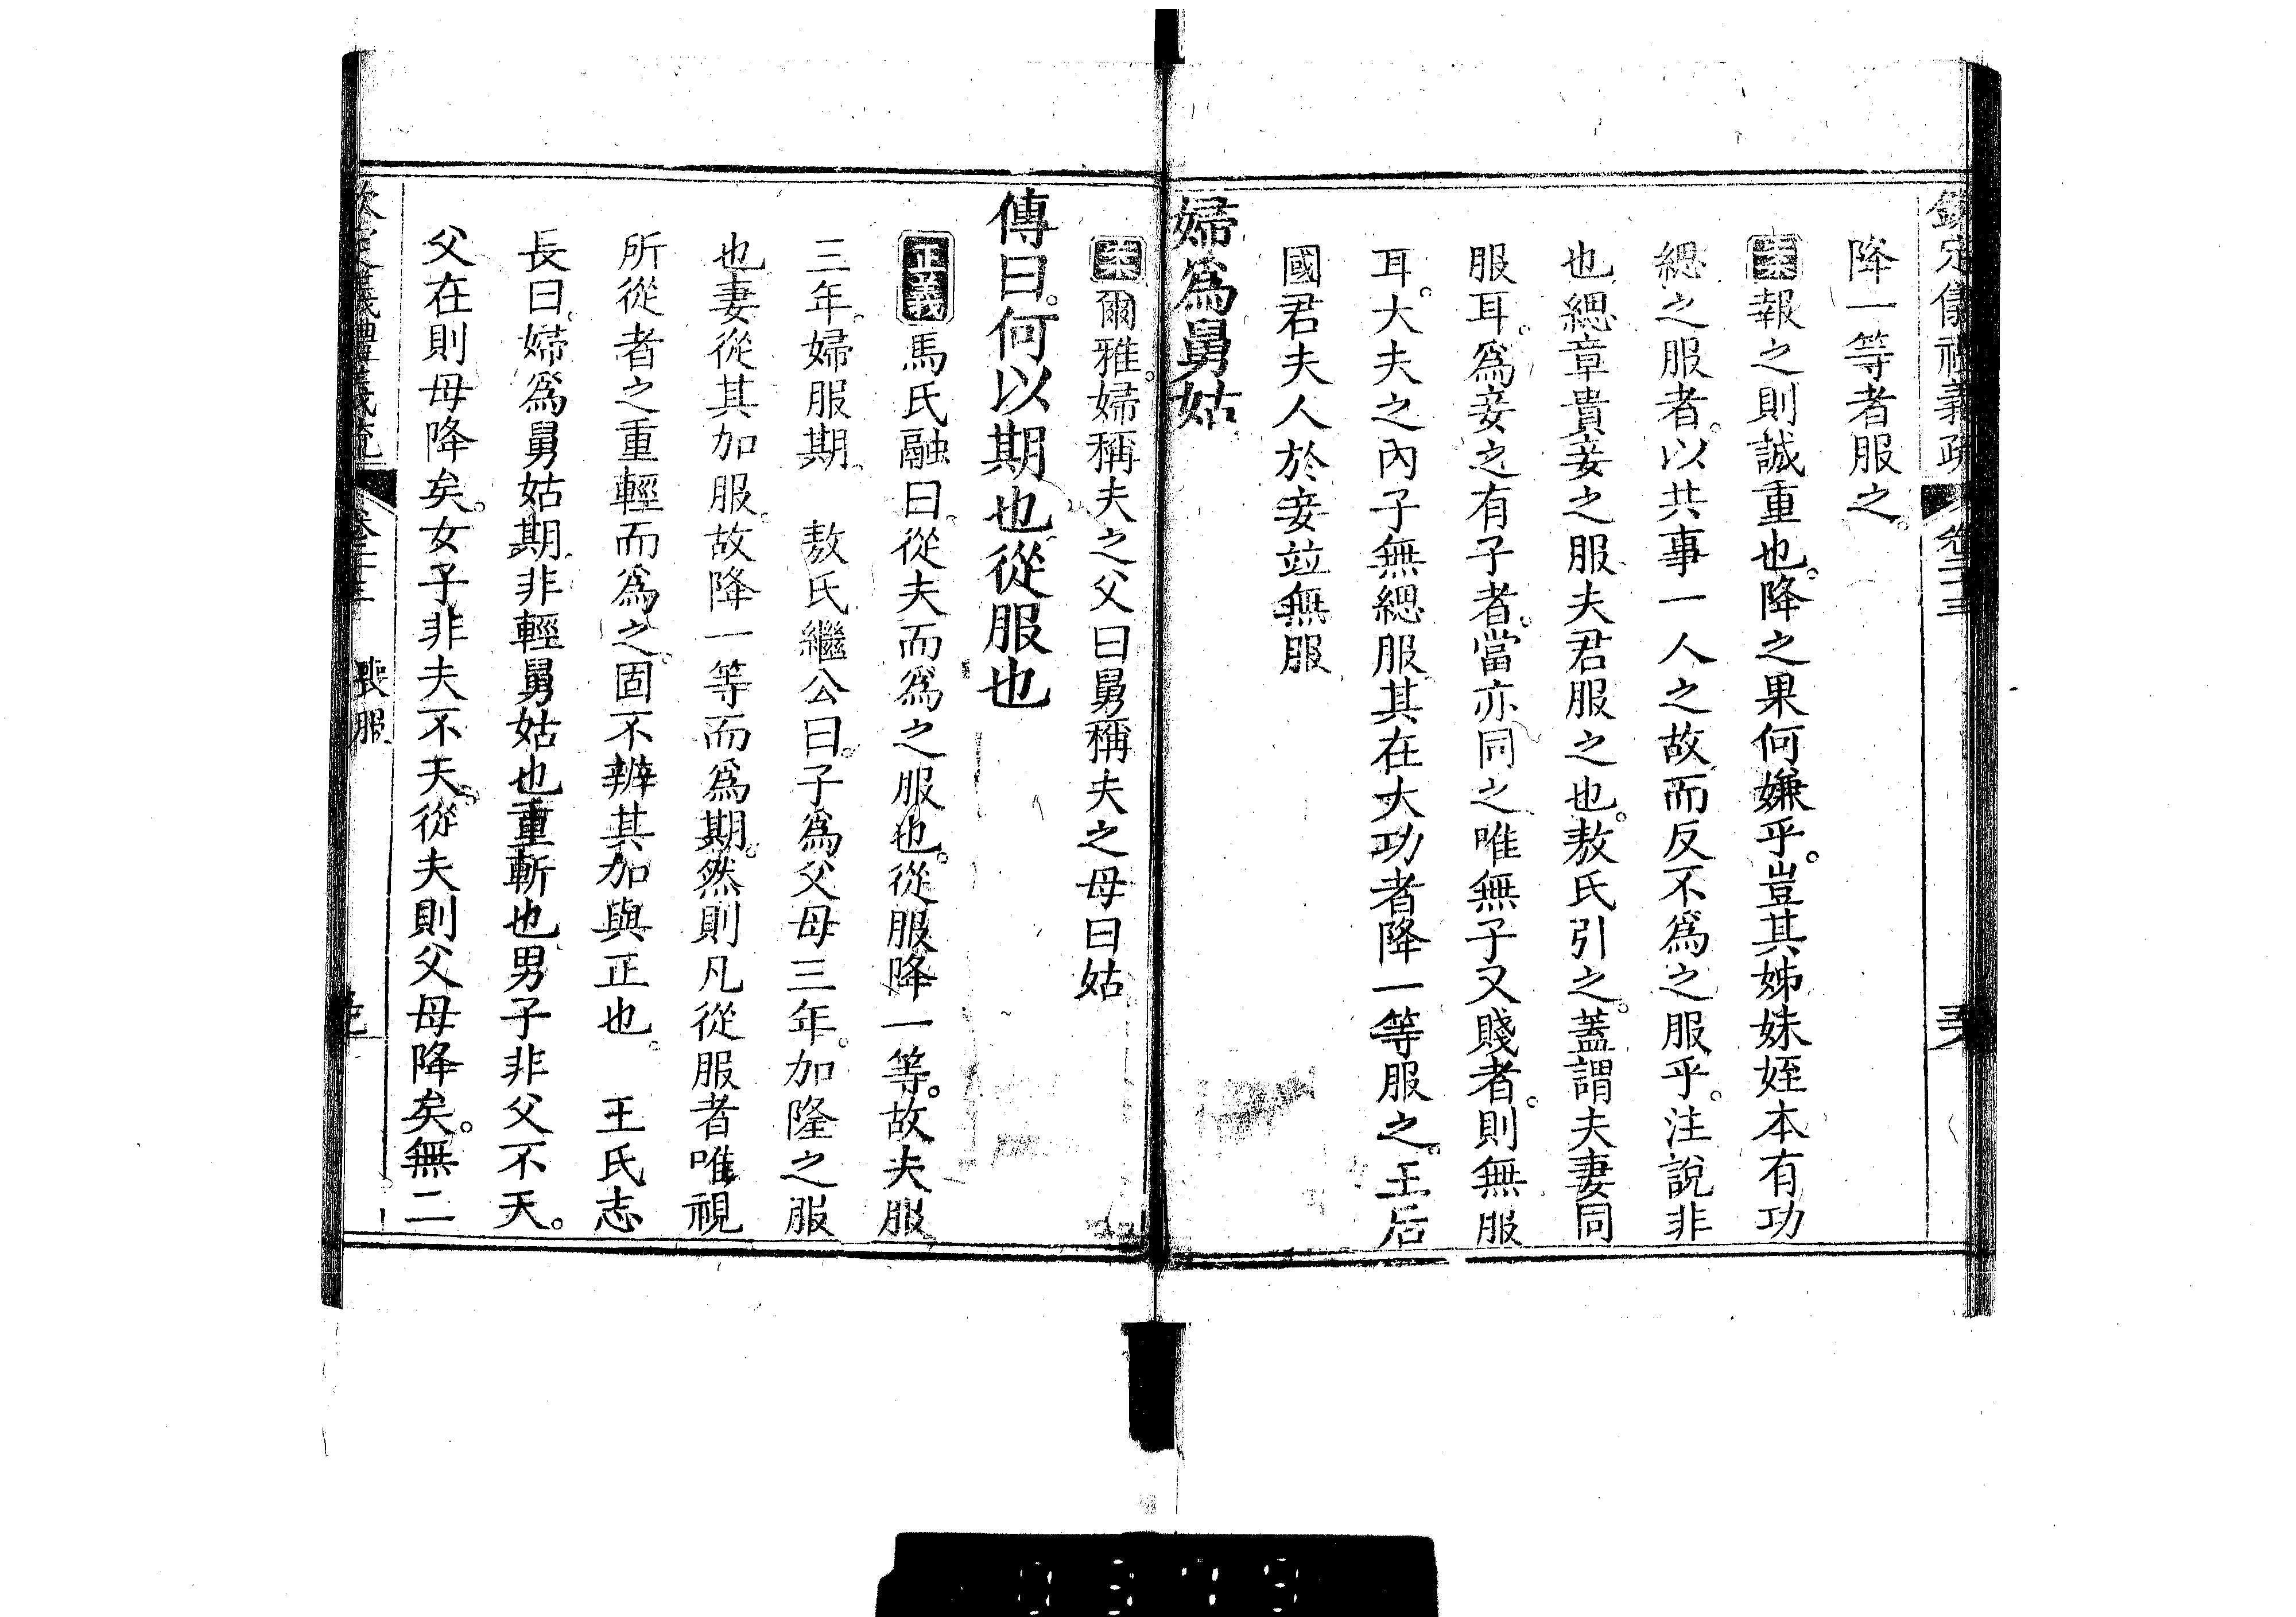 欽定儀禮義疏 卷二十三
降一等者服之。
案報之則誠重也。降之果何嫌乎。豈其姊妹姪本有功
緦之服者。以共事一人之故而反不爲之服乎。注說非
也緦章貴妾之服夫君服之也。敖氏引之。蓋謂夫妻同
服耳。爲妾之有子者。當亦同之唯無子又賤者。則無服
耳。大夫之內子無緦服其在大功者降一等服之。王后
國君夫人於妾竝無服
婦爲舅姑
案爾雅。婦稱夫之父曰舅稱夫之母曰姑
傳曰。何以期也從服也
正義馬氏融曰。從夫而爲之服也。從服降一等。故夫服
三年。婦服期。 敖氏繼公曰。子爲父母三年。加隆之服
也。妻從其加服。故降一等而爲期。然則凡從服者唯視
所從者之重輕而爲之。固不辨其加與正也。 王氏志
長曰。婦爲舅姑期。非輕舅姑也重斬也男子非父不天。
父在則母降矣。女子非夫不天。從夫則父母降矣。無二
欽定儀禮義疏 卷二十三 喪服